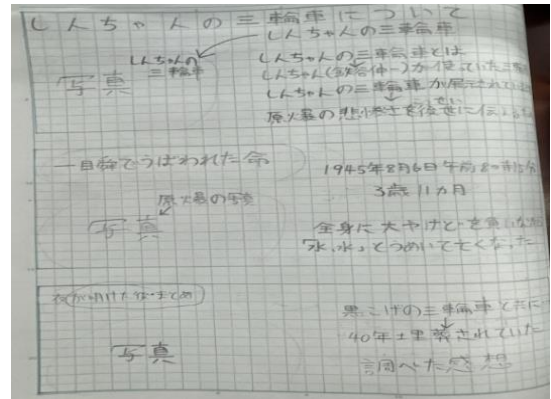 しんちゃんの三輪車について
しんちゃんの三輪車
しんちゃんの
三輪車
写真
しんちゃんの三輪車とは
しんちゃん(鉄谷伸一)が使っていた三
しんちゃんの三輪車が展示されてい
原火暴の悲惨さを後世に伝える
一瞬でうばわれた命
1945年8月6日 午前8時15分
3歳11カ月
原火暴の写真
写真
全身に大やけどを負い
「水、水」とうめいて亡くなった
まとめ
写真
黒こげの三輪車とともに
40年土里葬されていた
調べた感想